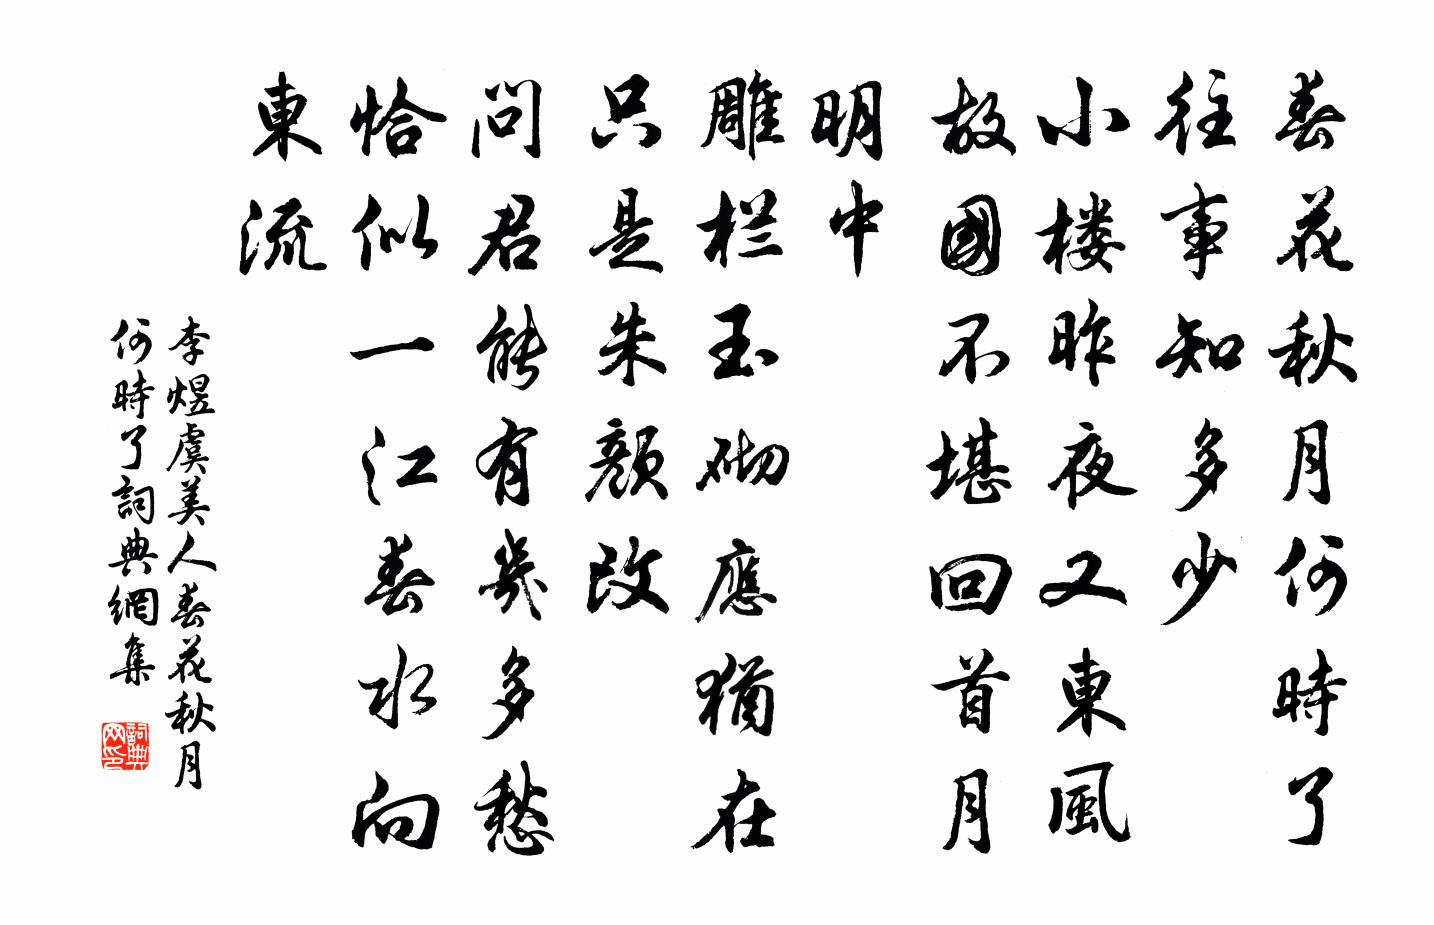 春花秋月何時了
往事知多少
小楼昨夜又東風
故國不堪回首月
明中
雕栏玉砌應猶在
只是朱颜改
问君能有幾多愁
恰似一江春水向
東流
李煜虞美人春花秋月
何時了詞典網集
詞典
网印